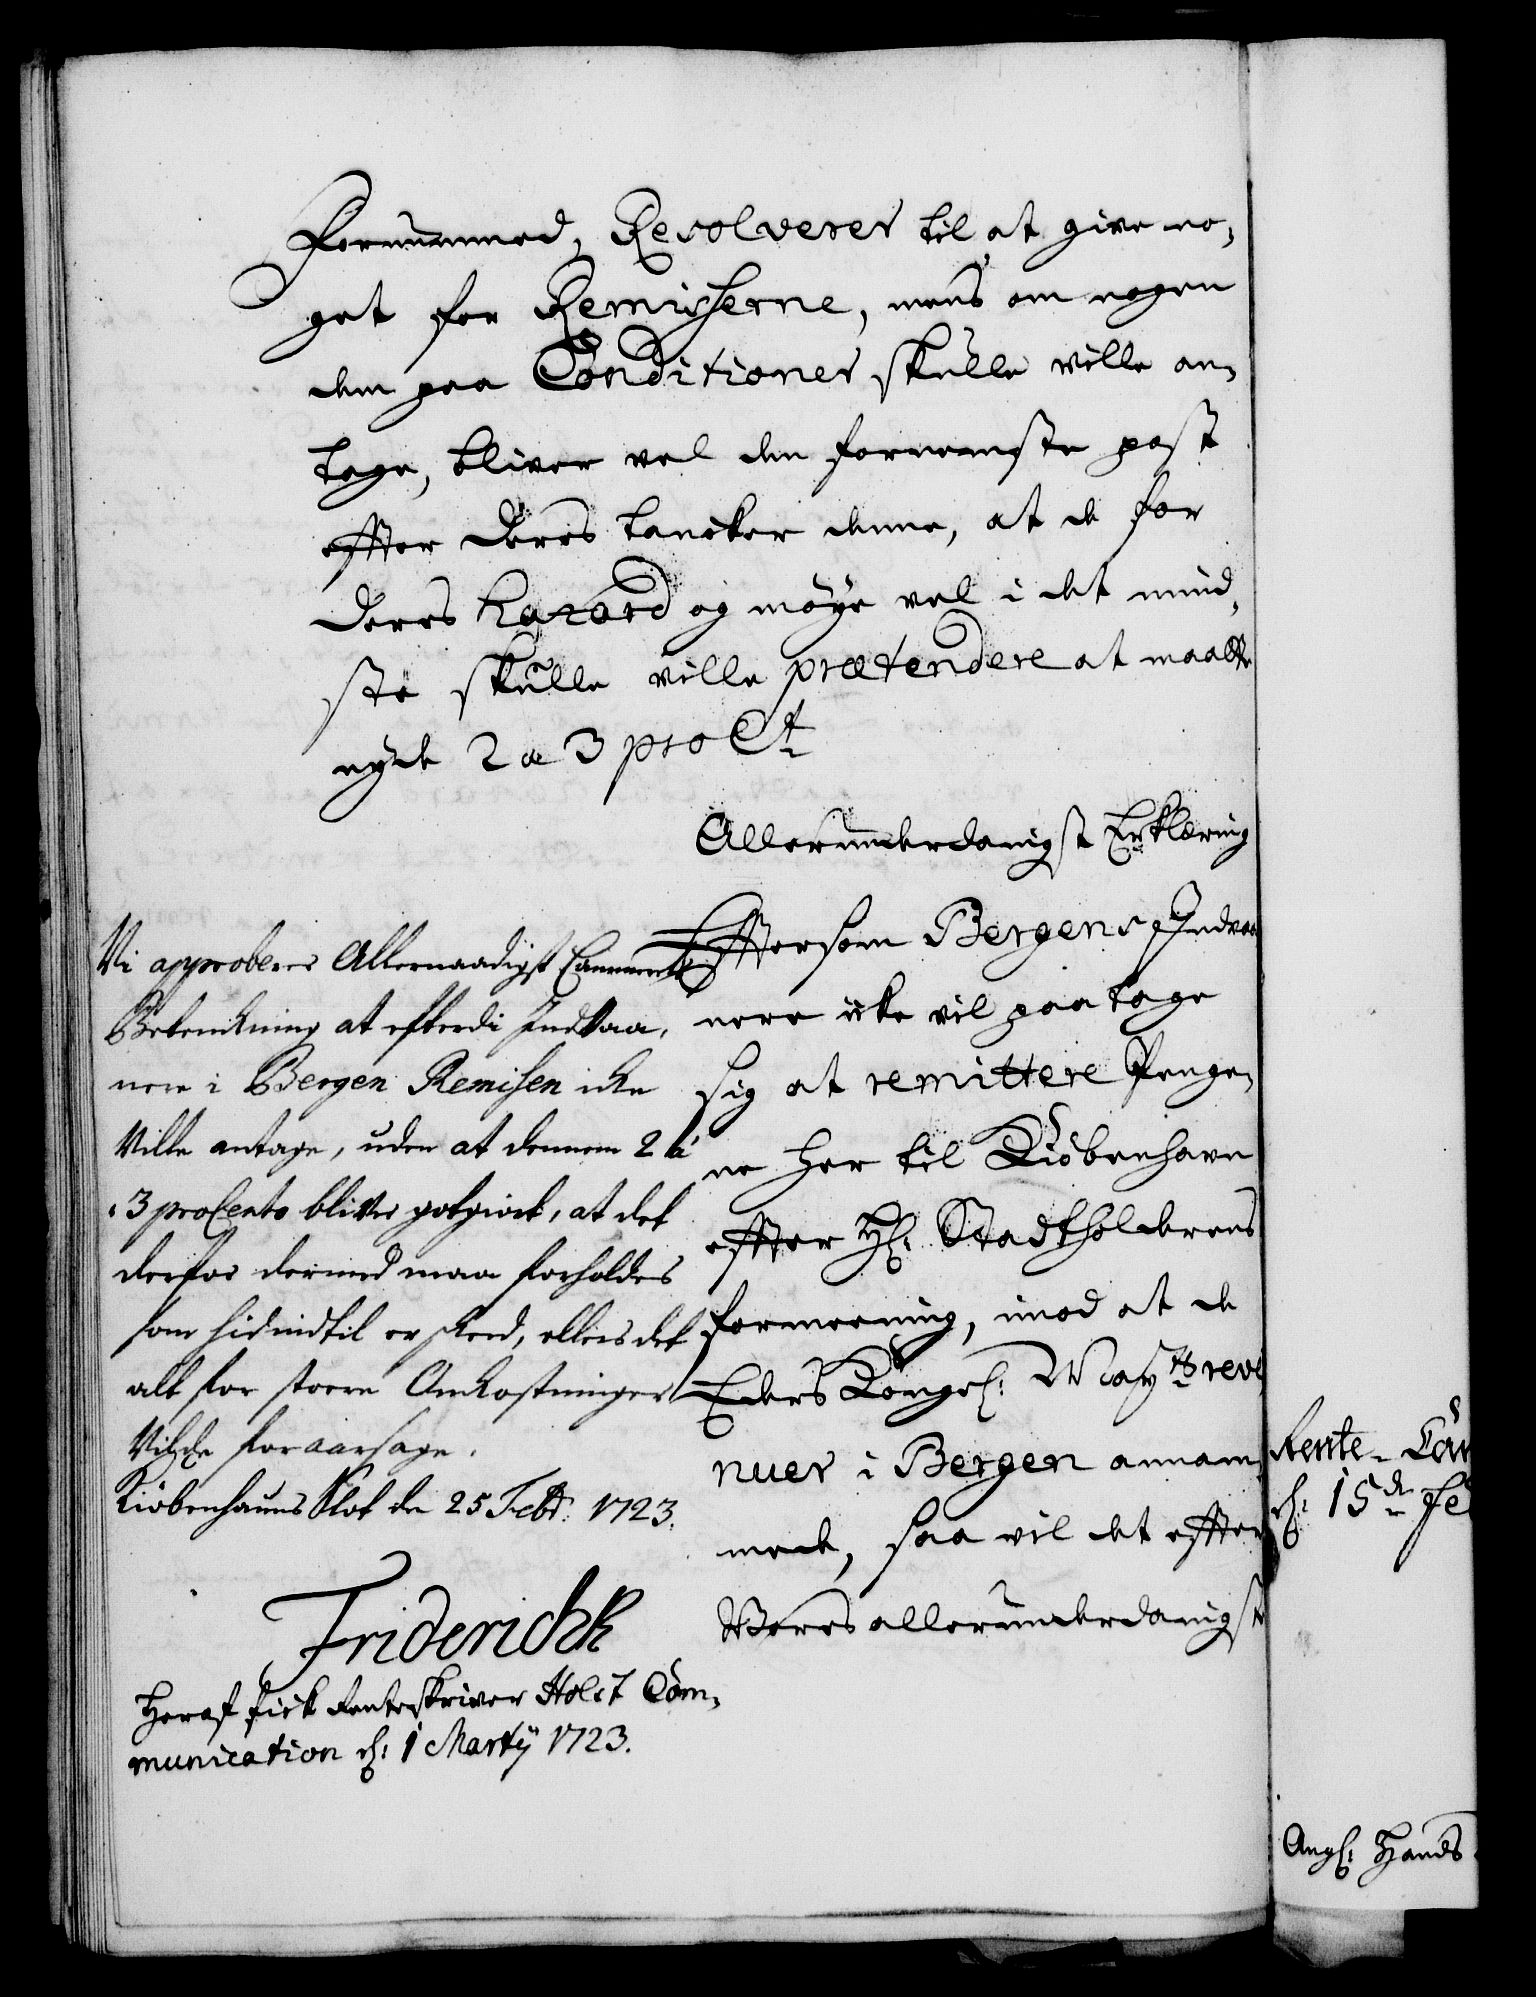 Formummed, Resolverer til at give no,
get for Remisserne, mens om nogen
dem paa Conditioner skulle ville an,
tage, bliver vel den fornemste post
effter deres tancker denne, at de for
deres hazard og møye vel i det mind,
ste skulle ville prætendere at maatte
nyde 2 a 3 pro Ct
Allerunderdanigst Erklæring
Efftersom Bergens Indvaa
nere icke vil paatage
sig at remittere Penge,
ne her til Kiøbenhavn
effter H: Stadtholderens
formeening, imod at de
Eders Kongel: Mayts reve
nuer i Bergen annam,
mede, saa vil det effter
Vores allerunderdanigste
Vi approberer Allernaadigst Cammerets
Betenkning at efterdi Indvaa,
nere i Bergen Remisen icke
Ville antage, uden at dennem 2 à
3 proCento bliver gotgiort, at det
derfor dermed maa forholdes
som hidindtil er skeed, ellers det
alt for stoere Omkostninger
Vilde foraarsage.
Kiøbenhauns Slot den 25 Febr: 1723.
Friderich R
Heraf fick Renteskriver Holst Com,
munication d: 1 Martij 1723.
Rente-Cam
d: 15de Fe
Ang: Hands